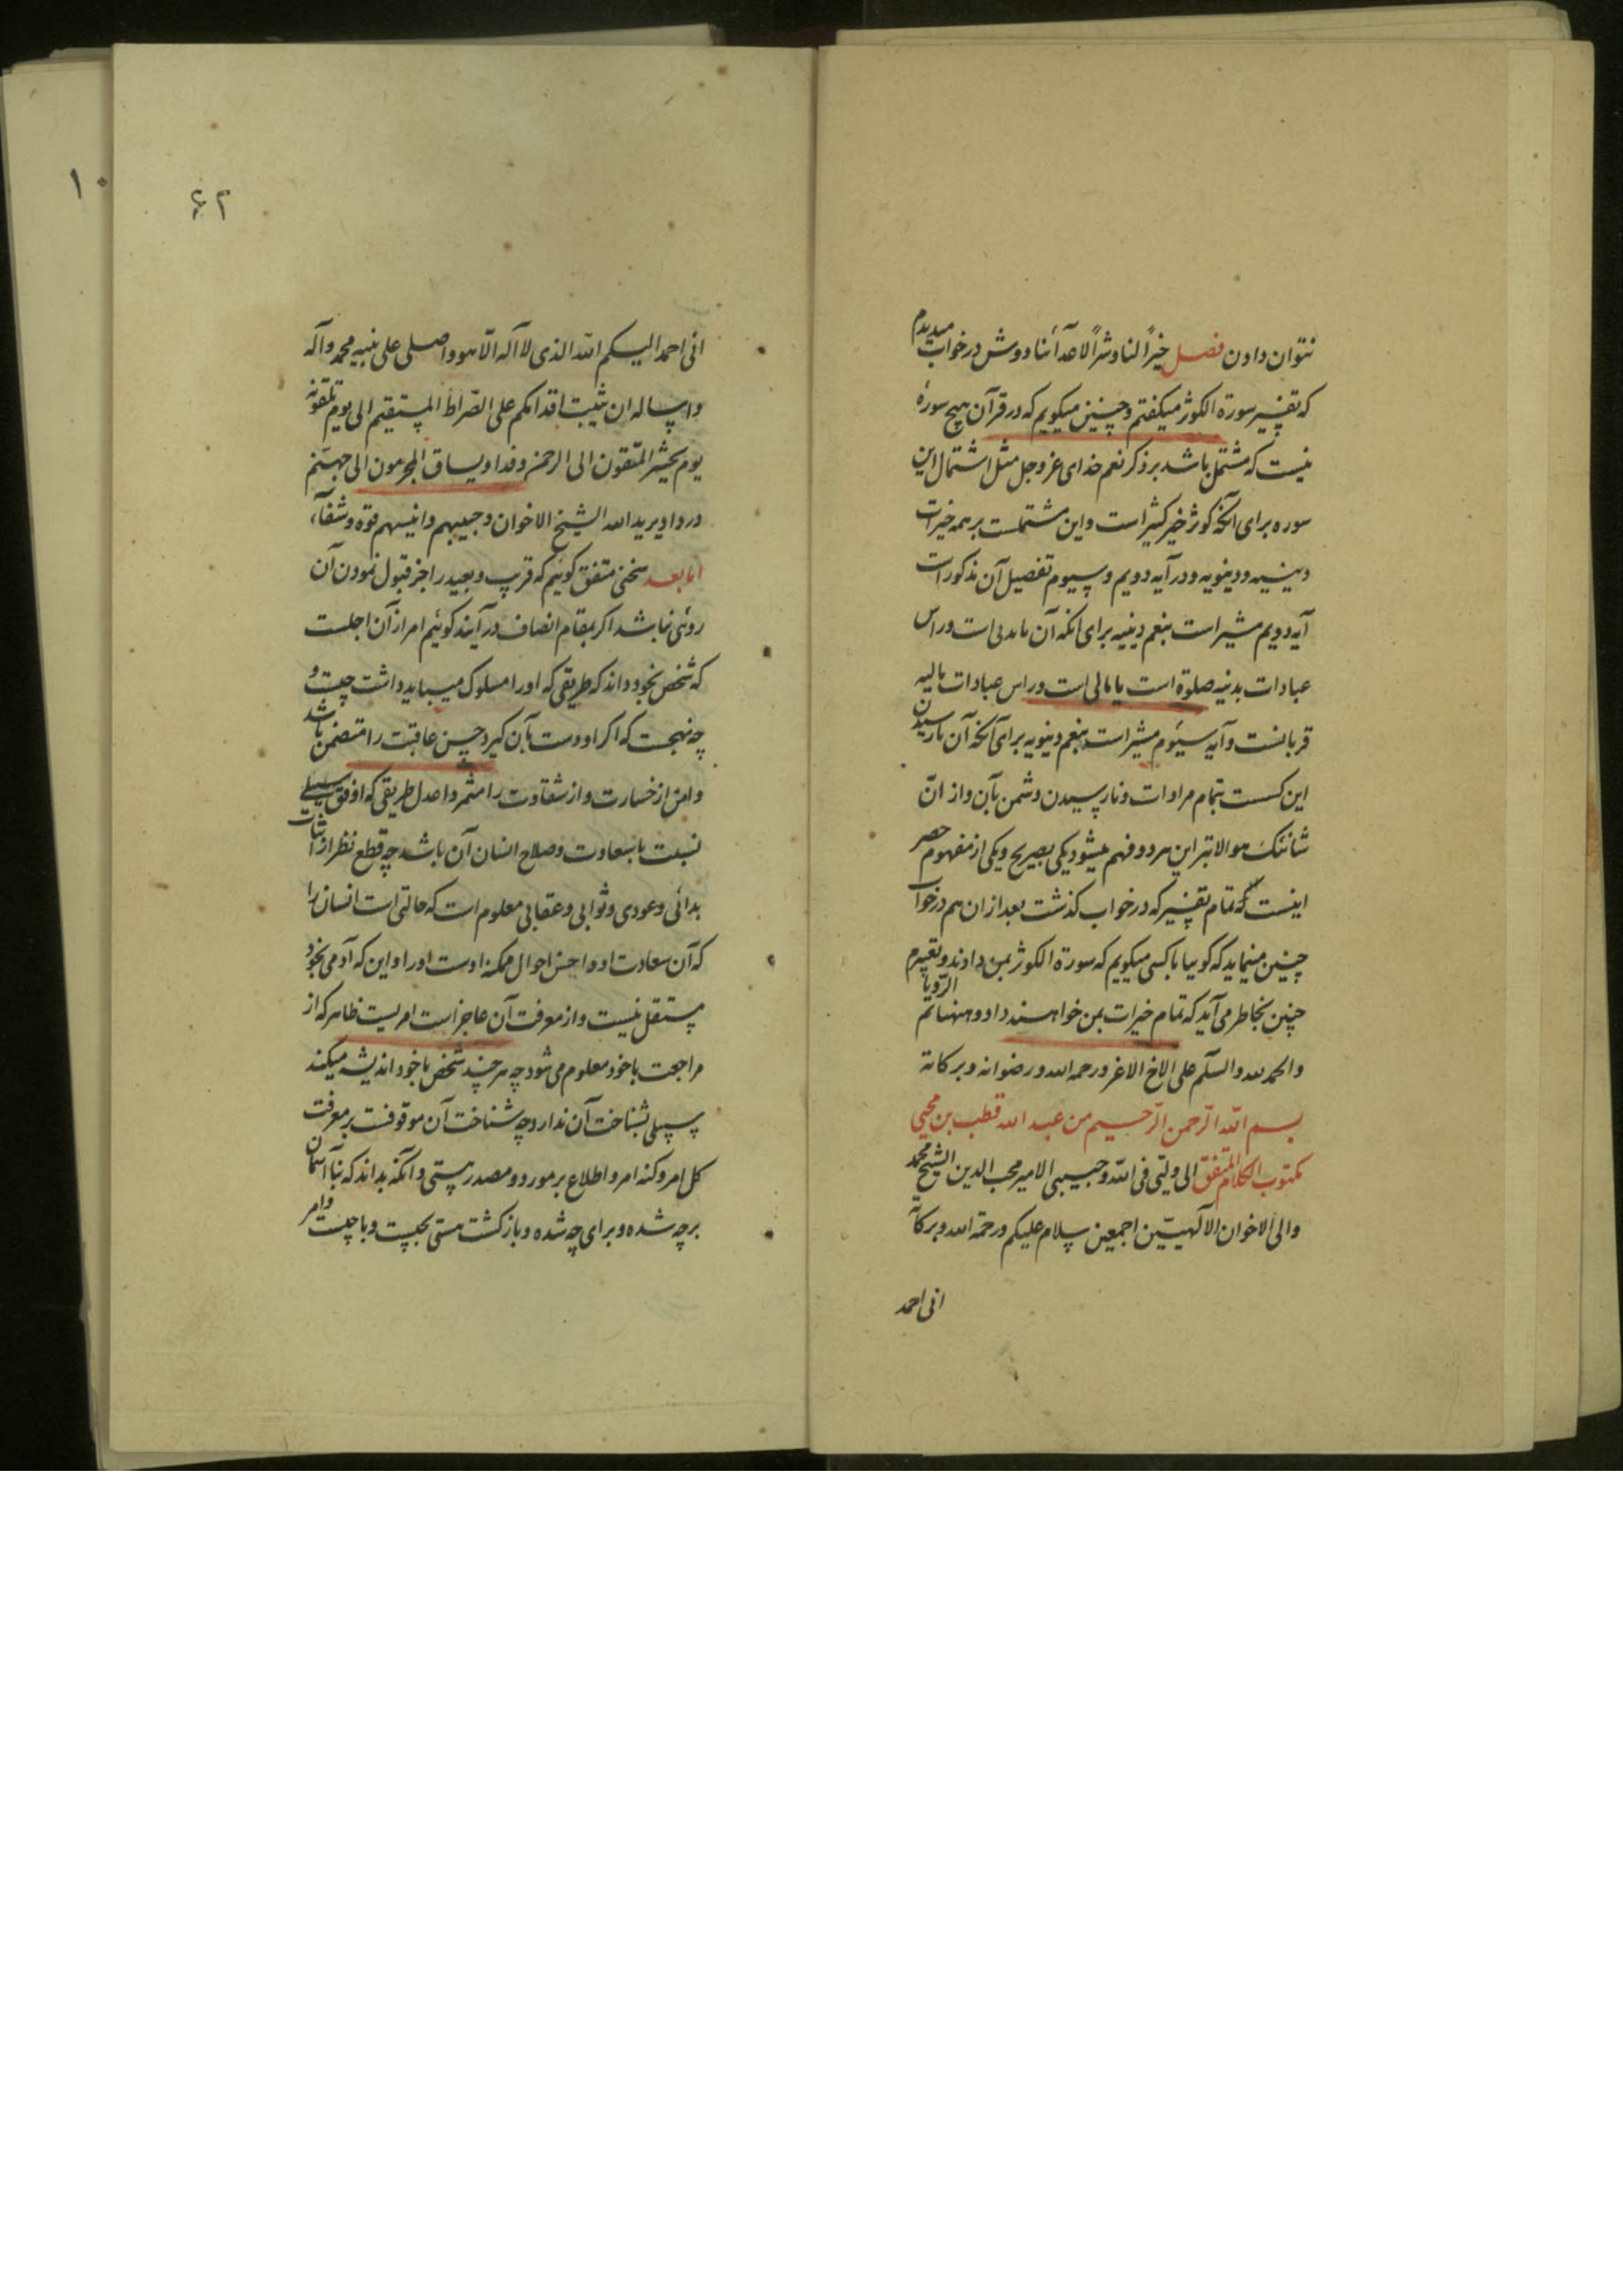 نتوان دادن فصل خیراً لنا و شراً لاعدآئنا دوش در خواب میدیدم
که تفسیر سورة الکوثر میکفتم و چنین میکویم که در قرآن هیچ سورۀ
نیست که مشتمل باشد بر ذکر نعم خدای عز و جل مثل اشتمال این
سوره برای آنکه کوثر خیر کثیر است و این مشتملست بر همه خیرات
دینیه و دینویه و در آیه دویم و سیوم تفصیل آن مذکور است
آیه دویم مشیر است بنعم دینیه برای آنکه آن یا بدنی است و راس
عبادات بدنیه صلوة است یا مالی است و راس عبادات مالیه
قربانست و آیه سیوم مشیر است بنعم دینویه برای آنکه آن یا رسیدن
این کسست بتمام مرادات و نارسیدن دشمن بآن و از انّ
شانئک هو الابتر این هر دو فهم میشود یکی بصریح و یکی از مفهوم حصر
اینست که تمام تفسیر که در خواب کذشت بعد از ان هم در خواب
چنین مینماید که کوییا با کسی میکویم که سورة الکوثر بمن دادند و تعبیرم
چنین بخاطر می آید که تمام خیرات بمن خواهند داد و ههنا تم الرؤیا
والحمد لله والسلم علی الاخ الاغر ورحمه الله ورضوانه وبرکاته
بسم الله الرحمن الرحیم من عبد الله قطب بن محیی
مکتوب الکلام المتفق الی ولیی فی الله وحبیبی الامیر محب الدین الشیخ محمد
والی الاخوان الآلهیین اجمعین سلام علیکم ورحمة الله وبرکاته
انی احمد
۶۲
انی احمد الیکم الله الذی لا اله الا هو واصلی علی نبیه محمد وآله
واساله ان یثبت اقدامکم علی الصراط المستقیم الی یوم تلقونه
یوم یحشر المتقون الی الرحمن وفدا ویساق المجرمون الی جهنم
وردا ویرید الله الشیخ الاخوان وحبیبهم وانیسهم قوة وشفآء
اما بعد سخنی متفق کوئیم که قریب و بعید را جز قبول نمودن آن
روئی نباشد اکر بمقام انصاف در آیند کوئیم امر از آن اجلست
که شخص بخود داند که طریقی که او را مسلوک میباید داشت چیست و
چه نهجست که اکر او دست بآن کیرد حسن عاقبت را متضمن باشد
و امن از خسارت و از شقاوت را مثمر و اعدل طریقی که اوفق سبیلی
نسبت با سعادت و صلاح انسان آن باشد چه قطع نظر از اثبات
بدائی و عودی و ثوابی و عقابی معلوم است که حالتی است انسان را
که آن سعادت او و احسن احوال ممکنه اوست او را و این که آدمی بخود
مستقل نیست و از معرفت آن عاجز است امریست ظاهر که از
مراجعت با خود معلوم می شود چه هر چند شخص با خود اندیشه میکند
سبیلی بشناخت آن ندارد چه شناخت آن موقوفست بر معرفت
کل امر و کنه امر و اطلاع بر مورد و مصدر هستی و آنکه بداند که بنآ آسمان
بر چه شده و برای چه شده و بازکشت هستی بچیست و با چیست و امر
۱۰